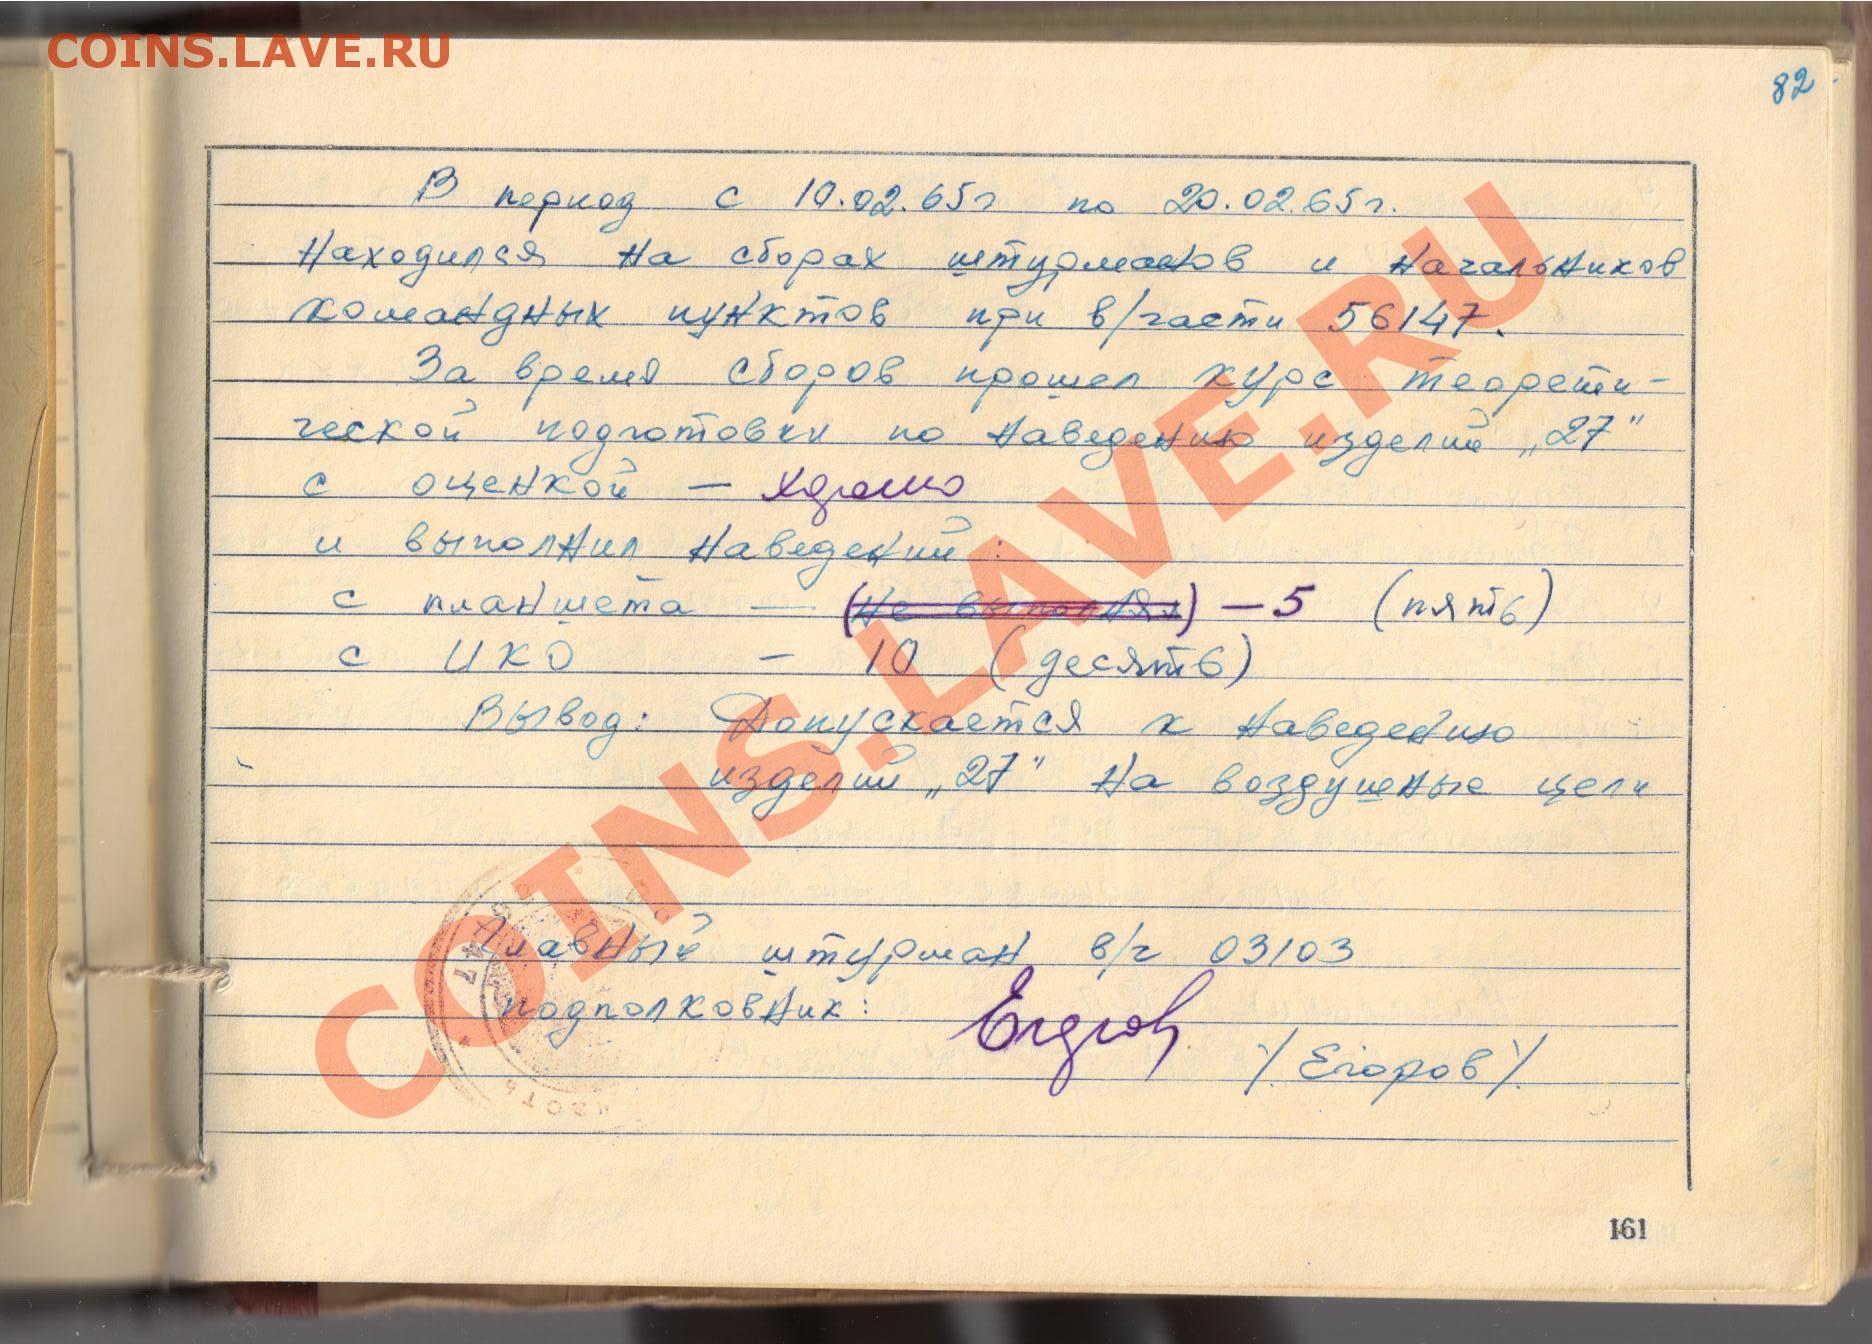 COINS.LAVE.RU
82
В период с 10.02.65г по 20.02.65г.
находился на сборах штурманов и начальников
командных пунктов при в/части 56147.
За время сборов прошел курс теорети-
ческой подготовки по наведению изделий „27"
с оценкой — хорошо
и выполнил наведений:
с планшета — (не выполнял) — 5 (пять)
с ИКО — 10 (десять)
Вывод: Допускается к наведению
изделий „27" на воздушные цели
Главный штурман в/ч 03103
подполковник:
Егоров
/Егоров/.
161
COINS.LAVE.RU